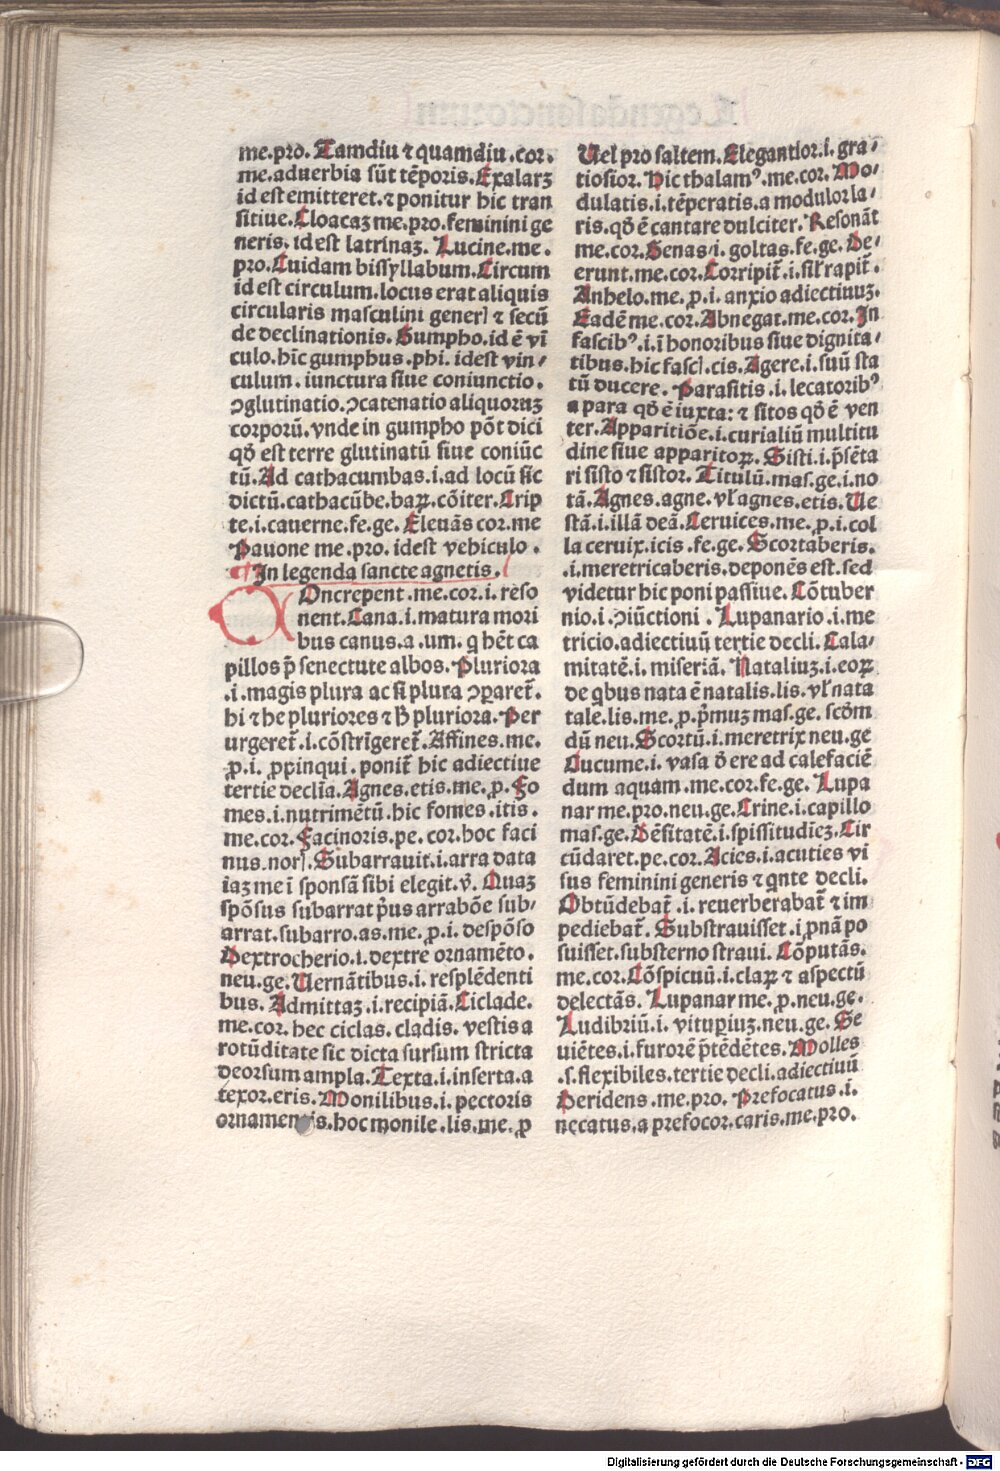 me.pro. Tamdiu ⁊ quamdiu.cor.
me.aduerbia sūt tēporis. Exalarꝫ
id est emitteret.⁊ ponitur hic tran
sitiue. Cloacaꝫ me.pro.feminini ge
neris. id est latrinaꝫ. Lucine.me.
pro. Cuidam bissyllabum. Circum
id est circulum.locus erat aliquis
circularis masculini generꝭ ⁊ secū
de declinationis. Gumpho.id ē vī
culo.hic gumphus.phi. idest vin⸗
culum. iunctura siue coniunctio.
ↄglutinatio.ↄcatenatio aliquoruꝫ
corporū.vnde in gumpho pōt dici
qđ est terre glutinatū siue coniūc
tū. Ad cathacumbas.i.ad locū sic
dictū.cathacūbe.baꝝ.cōiter. Crip
te.i.cauerne.fe.ge. Eleuās cor.me
Pauone me.pro. idest vehiculo.
In legenda sancte agnetis.
Oncrepent.me.cor.i.reso
nent. Cana.i.matura mori
bus canus.a.um.q hēt ca
pillos p̄ senectute albos. Pluriora
.i.magis plura ac si plura ↄꝑaret̄.
hi ⁊ he pluriores ⁊ h̄ pluriora. Per
urgeret̄.i.cōstrīgeret̄. Affines.me.
ꝓ.i. ꝓpinqui.ponit̄ hic adiectiue
tertie declīa. Agnes.etis.me.ꝓ. Fo
mes.i.nutrimētū.hic fomes.itis.
me.cor. Facinoris.pe.cor.hoc faci
nus.norꝭ. Subarrauit.i.arra data
iaꝫ me ī sponsā sibi elegit.v̄. Quaꝫ
spōsus subarrat pꝰus arrabōe sub⸗
arrat.subarro.as.me.ꝓ.i. despōso
Dextrocherio.i.dextre ornamēto.
neu.ge. Uernātibus.i.resplēdenti
bus. Admittaꝫ.i.recipiā. Ciclade.
me.cor.hec ciclas.cladis.vestis a
rotūditate sic dicta sursum stricta
deorsum ampla. Texta.i.inserta.a
texor.eris. Monilibus.i.pectoris
ornamen is.hoc monile.lis.me.ꝓ
Uel pro saltem. Elegantior.i.gra⸗
tiosior. Hic thalamꝰ.me.cor. Mo⸗
dulatis.i.tēperatis.a modulor la⸗
ris.qđ ē cantare dulciter. Resonāt
me.cor. Genas.i.goltas.fe.ge. De⸗
erunt.me.cor. Corripit̄.i.sil̄ rapit̄.
Anhelo.me.ꝓ.i.anxio adiectiuuꝫ.
Eadē me.cor. Abnegat.me.cor. In
fascibꝰ.i.ī honoribus siue dignita⸗
tibus.hic fascꝭ.cis. Agere.i.suū sta
tū ducere. Parasitis.i.lecatoribꝰ
a para qđ ē iuxta: ⁊ sitos qđ ē ven
ter. Apparitiōe.i.curialiū multitu
dine siue apparitoꝝ. Sisti.i.p̄sēta
ri sisto ⁊ sistor. Titulū.mas.ge.i.no
tā. Agnes.agne.vl̄ agnes.etis. Ue
stā.i.illā deā. Ceruices.me.ꝓ.i.col
la ceruix.icis.fe.ge. Scortaberis.
.i.meretricaberis.deponēs est.sed
videtur hic poni passiue. Cōtuber
nio.i.ↄiūctioni. Lupanario.i.me
tricio.adiectiuū tertie decli. Cala⸗
mitatē.i.miseriā. Nataliuꝫ.i.eoꝝ
de qbus nata ē natalis.lis.vl̄ nata
tale.lis.me.ꝓ.p̄muꝫ mas.ge.scōm
dū neu. Scortū.i.meretrix neu.ge
Cucume.i.vasa đ ere ad calefaciē
dum aquam.me.cor.fe.ge. Lupa
nar me.pro.neu.ge. Crine.i.capillo
mas.ge. Dēsitatē.i.spissitudīeꝫ. Cir
cūdaret.pe.cor. Acies.i.acuties vi
sus feminini generis ⁊ qnte decli.
Obtūdebat̄.i.reuerberabat̄ ⁊ im
pediebat̄. Substrauisset.i pnā po
suisset.substerno straui. Cōputās.
me.cor. Cōspicuū.i.claꝝ ⁊ aspectū
delectās. Lupanar me.ꝓ.neu.ge.
Ludibriū.i.vituꝑiuꝫ.neu.ge. Se
uiētes.i.furorē p̄tēdētes. Molles
.s.flexibiles.tertie decli.adiectiuū
Deridens.me.pro. Prefocatus.i.
necatus.a prefocor.caris.me.pro.
Digitalisierung gefördert durch die Deutsche Forschungsgemeinschaft - DFG